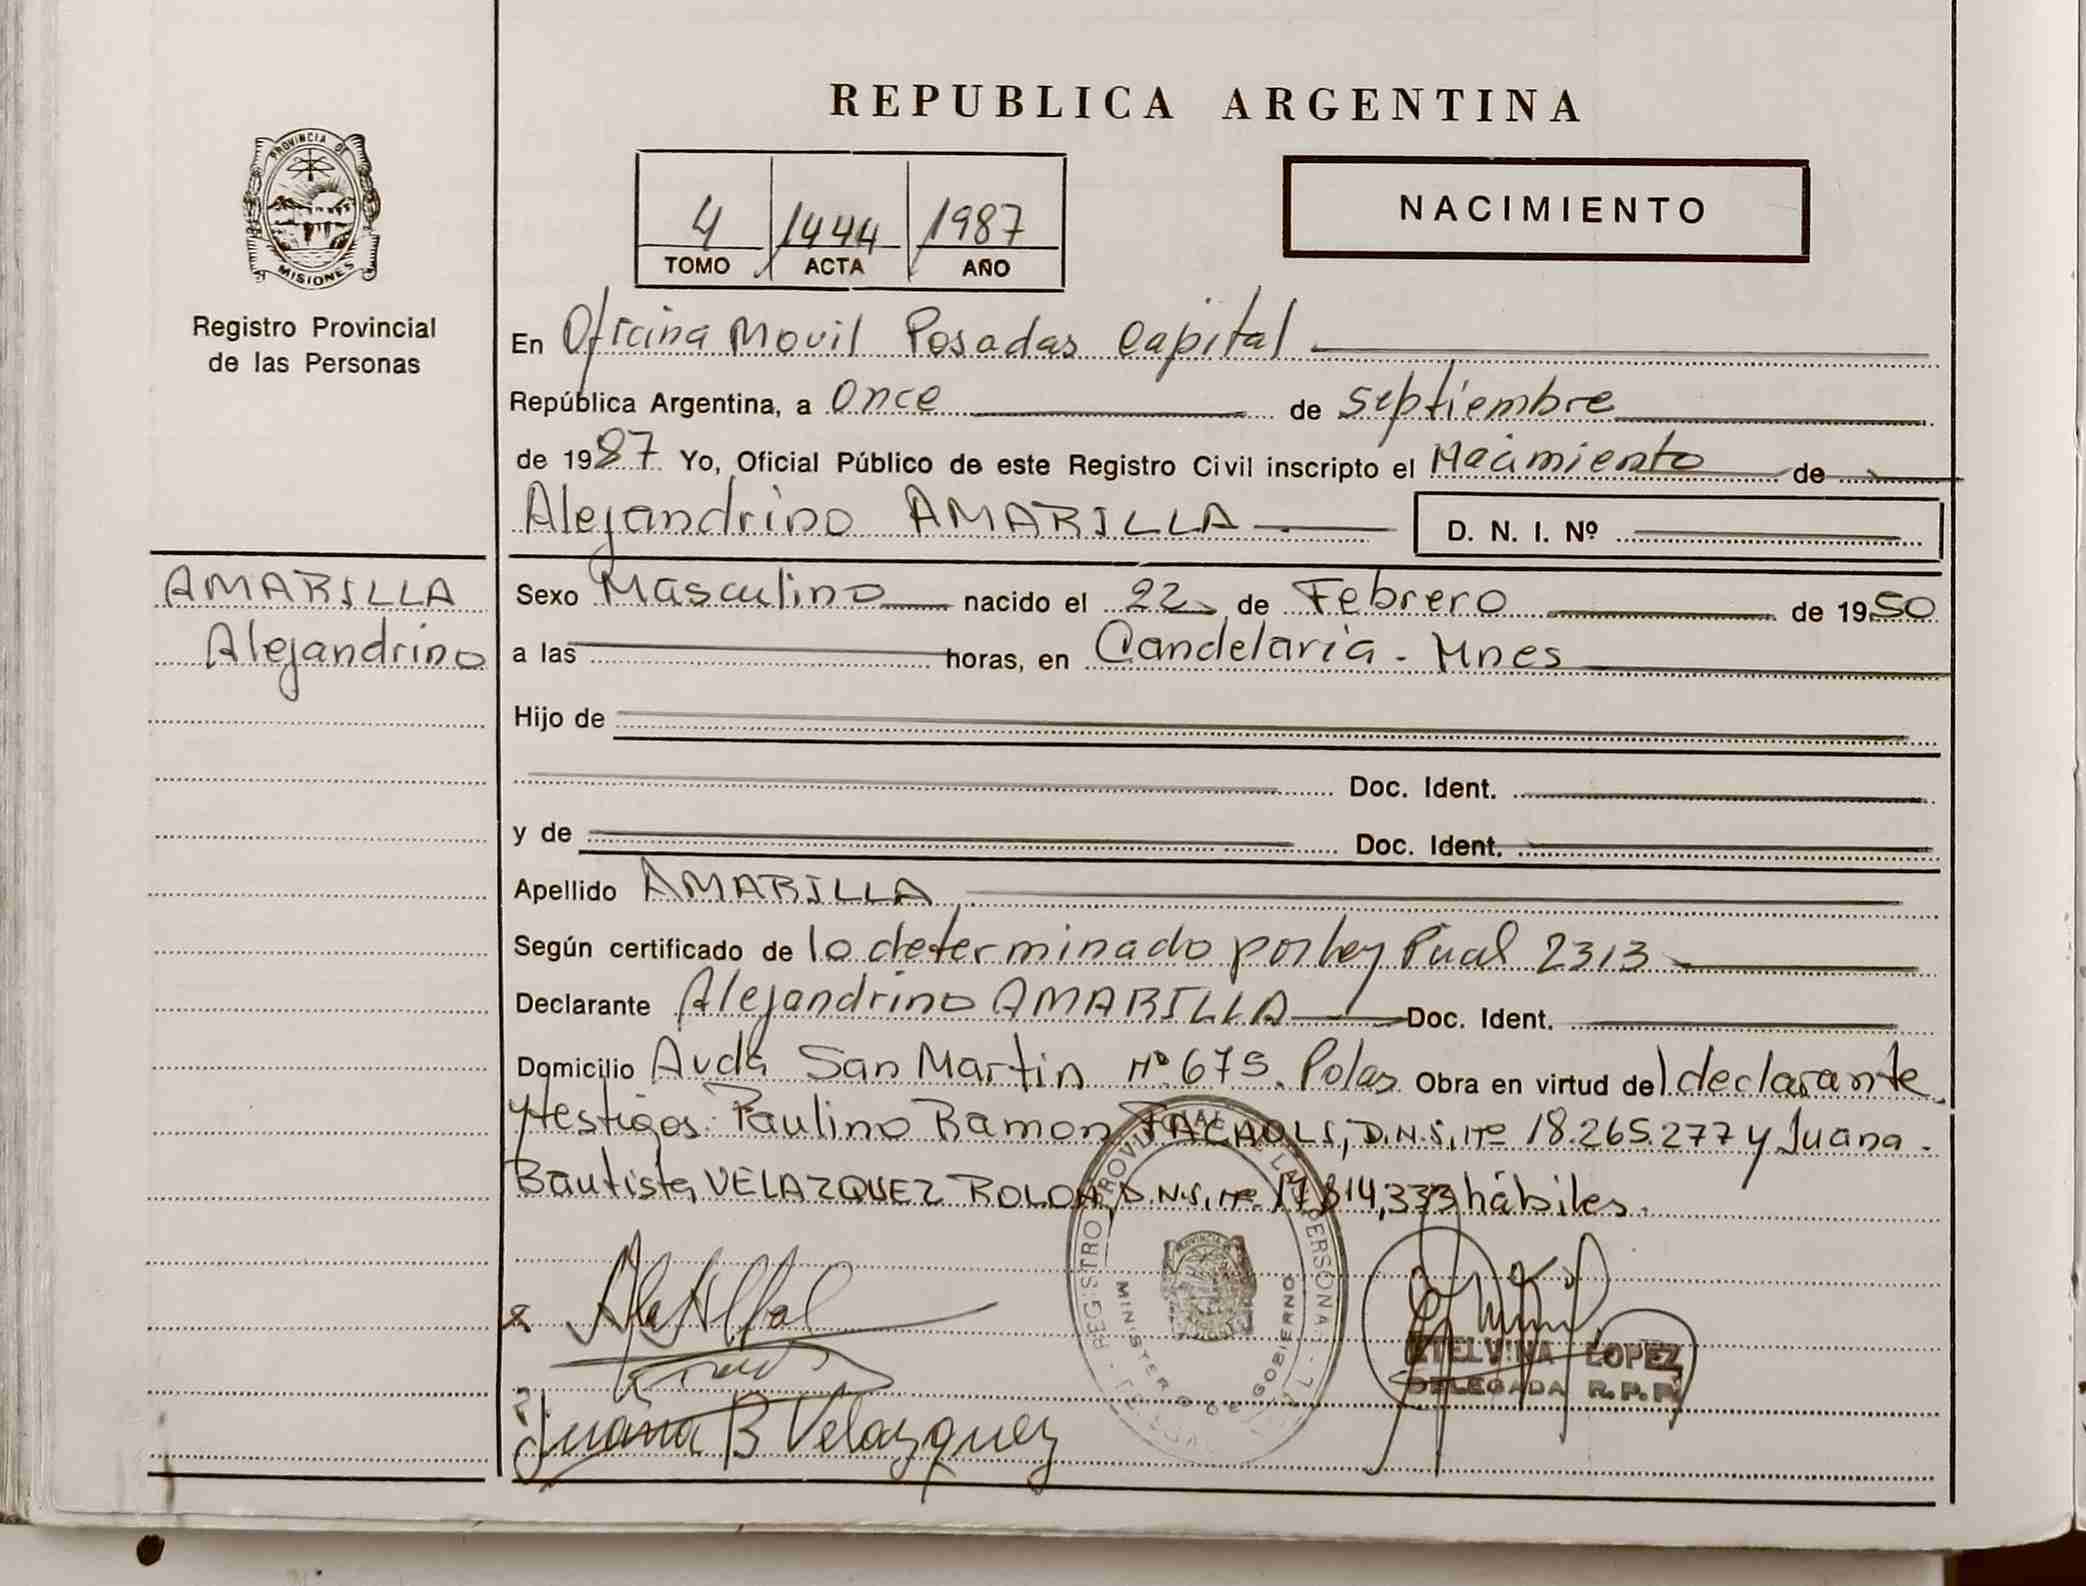 REPUBLICA ARGENTINA
PROVINCIA DE
MISIONES
Registro Provincial
de las Personas
4 1444 1987
TOMO ACTA AÑO
NACIMIENTO
En Oficina Movil Posadas Capital
República Argentina, a Once de septiembre
de 1987 Yo, Oficial Público de este Registro Civil inscripto el Nacimiento de
Alejandrino AMARILLA D. N. I. Nº
AMARILLA
Alejandrino
Sexo Masculino nacido el 22 de Febrero de 1950
a las horas, en Candelaria - Mnes
Hijo de
Doc. Ident.
y de Doc. Ident.
Apellido AMARILLA
Según certificado de lo determinado por ley Pcial 2313
Declarante Alejandrino AMARILLA Doc. Ident.
Domicilio Avda San Martin Nº 675. Pdas Obra en virtud del declarante
y testigos: Paulino Ramon D.N.I. Nº 18.265.277 y Juana
Bautista VELAZQUEZ ROLON, D.N.I. Nº 17.814,333 hábiles.
REGISTRO PROVINCIAL DE LAS PERSONAS
PROVINCIA
MINISTERIO DE GOBIERNO
ETELVINA LOPEZ
DELEGADA R.P.P.
Juana B Velazquez